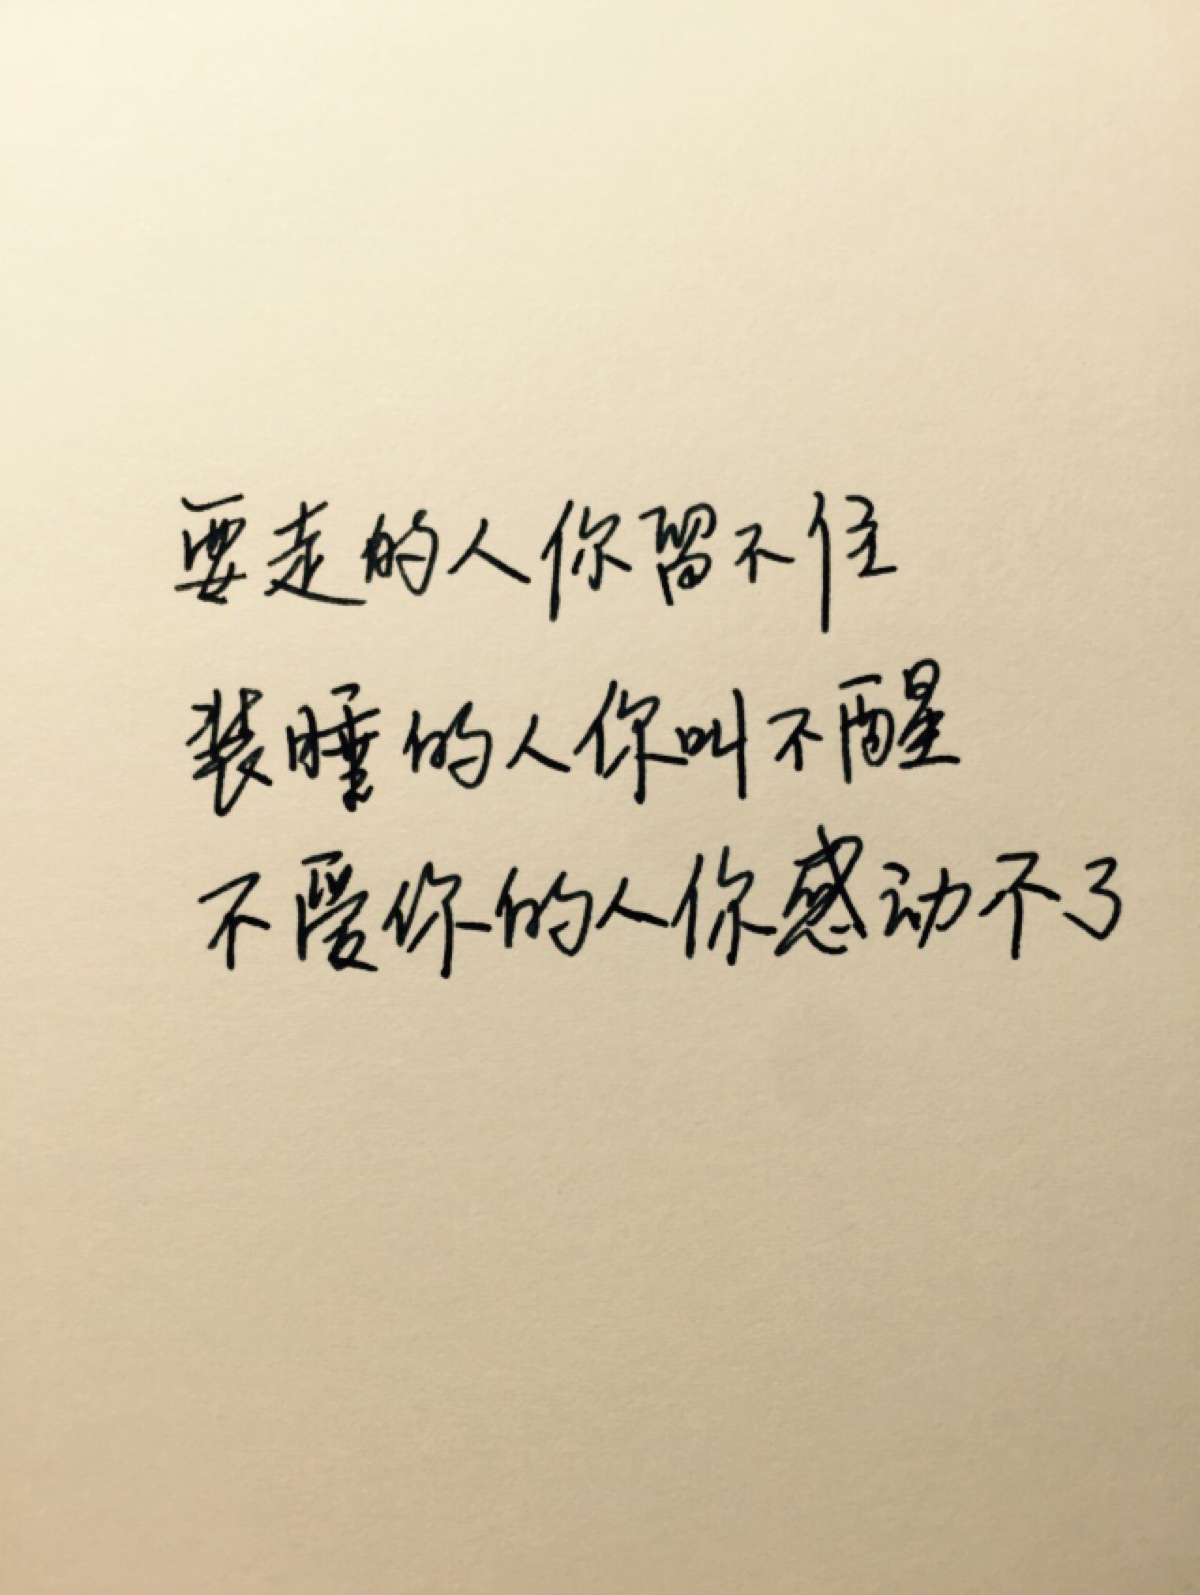 要走的人你留不住
装睡的人你叫不醒
不爱你的人你感动不了